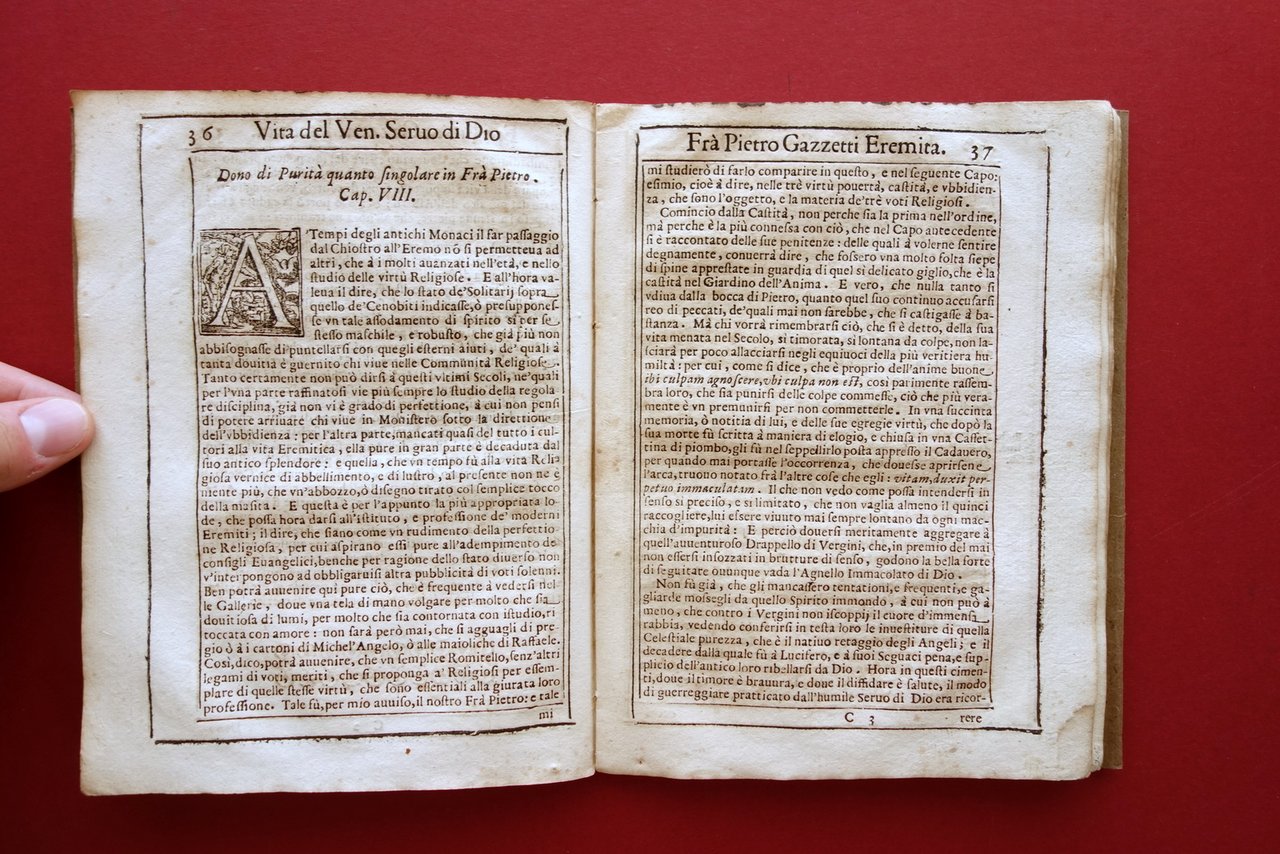 36 Vita del Ven. Seruo di Dio
Dono di Purità quanto singolare in Frà Pietro.
Cap. VIII.
A Tempi degli antichi Monaci il far passaggio
dal Chiostro all'Eremo nõ si permetteua ad
altri, che à i molti auanzati nell'età, e nello
studio delle virtù Religiose. E all'hora va-
leua il dire, che lo stato de'Solitarij sopra
quello de'Cenobiti indicasse, ò presuppones-
se vn tale assodamento di spirito sì per se
stesso maschile, e robusto, che già più non
abbisognasse di puntellarsi con quegli esterni aiuti, de' quali à
tanta douitia è guernito chi viue nelle Communità Religiose.
Tanto certamente non può dirsi à questi vltimi Secoli, ne'quali
per l'vna parte raffinatosi vie più sempre lo studio della regola-
re disciplina, già non vi è grado di perfettione, à cui non pensi
di potere arriuare chi viue in Monistero sotto la direttione
dell'vbbidienza: per l'altra parte, mancati quasi del tutto i cul-
tori alla vita Eremitica, ella pure in gran parte è decaduta dal
suo antico splendore: e quella, che vn tempo fù alla vita Reli-
giosa vernice di abbellimento, e di lustro, al presente non ne è
niente più, che vn'abbozzo, ò disegno tirato col semplice tocco
della matita. E questa è per l'appunto la più appropriata lo-
de, che possa hora darsi all'istituto, e professione de' moderni
Eremiti; il dire, che siano come vn rudimento della perfettio-
ne Religiosa, per cui aspirano essi pure all'adempimento de'
consigli Euangelici, benche per ragione dello stato diuerso non
v'interpongono ad obbligaruisi altra pubblicità di voti solenni.
Ben potrà auuenire qui pure ciò, che è frequente à vedersi nel-
le Gallerie, doue vna tela di mano volgare per molto che sia
douitiosa di lumi, per molto che sia contornata con istudio, ri-
toccata con amore: non sarà però mai, che si agguagli di pre-
gio ò à i cartoni di Michel'Angelo, ò alle maioliche di Raffaele.
Così, dico, potrà auuenire, che vn semplice Romitello, senz'altri
legami di voti, meriti, che si proponga a' Religiosi per essem-
plare di quelle stesse virtù, che sono essentiali alla giurata loro
professione. Tale fù, per mio auuiso, il nostro Frà Pietro: e tale
mi
Frà Pietro Gazzetti Eremita. 37
mi studierò di farlo comparire in questo, e nel seguente Capo:
esimio, cioè à dire, nelle trè virtù pouertà, castità, e vbbidien-
za, che sono l'oggetto, e la materia de'trè voti Religiosi.
Comincio dalla Castità, non perche sia la prima nell'ordine,
mà perche è la più connessa con ciò, che nel Capo antecedente
si è raccontato delle sue penitenze: delle quali à volerne sentire
degnamente, conuerrà dire, che fossero vna molto folta siepe
di spine apprestate in guardia di quel sì delicato giglio, che è la
castità nel Giardino dell'Anima. E vero, che nulla tanto si
vdiua dalla bocca di Pietro, quanto quel suo continuo accusarsi
reo di peccati, de'quali mai non sarebbe, che si castigasse à ba-
stanza. Mà chi vorrà rimembrarsi ciò, che si è detto, della sua
vita menata nel Secolo, sì timorata, sì lontana da colpe, non la-
sciarà per poco allacciarsi negli equiuoci della più veritiera hu-
miltà: per cui, come si dice, che è proprio dell'anime buone
ibi culpam agnoscere, vbi culpa non est, così parimente rassem-
bra loro, che sia punirsi delle colpe commesse, ciò che più vera-
mente è vn premunirsi per non commetterle. In vna succinta
memoria, ò notitia di lui, e delle sue egregie virtù, che dopò la
sua morte fù scritta à maniera di elogio, e chiusa in vna Casset-
tina di piombo, gli fù nel seppellirlo posta appresso il Cadauero,
per quando mai portasse l'occorrenza, che douesse aprirsene
l'arca, truouo notato frà l'altre cose che egli: vitam, duxit per-
petuo immaculatam. Il che non vedo come possa intendersi in
senso sì preciso, e sì limitato, che non vaglia almeno il quinci
raccogliere, lui essere viuuto mai sempre lontano da ogni mac-
chia d'impurità: E perciò douersi meritamente aggregare à
quell'auuenturoso Drappello di Vergini, che, in premio del mai
non essersi insozzati in brutture di senso, godono la bella sorte
di seguitare ouunque vada l'Agnello Immacolato di Dio.
Non fù già, che gli mancassero tentationi, e frequenti, e ga-
gliarde mossegli da quello Spirito immondo, à cui non può à
meno, che contro i Vergini non iscoppij il cuore d'immensa
rabbia, vedendo conferirsi in testa loro le inuestiture di quella
Celestiale purezza, che è il natiuo retaggio degli Angeli; e il
decadere dalla quale fù à Lucifero, e à suoi Seguaci pena, e sup-
plicio dell'antico loro ribellarsi da Dio. Hora in questi cimen-
ti, doue il timore è brauura, e doue il diffidare è salute, il modo
di guerreggiare pratticato dall'humile Seruo di Dio era ricor-
C 3 rere